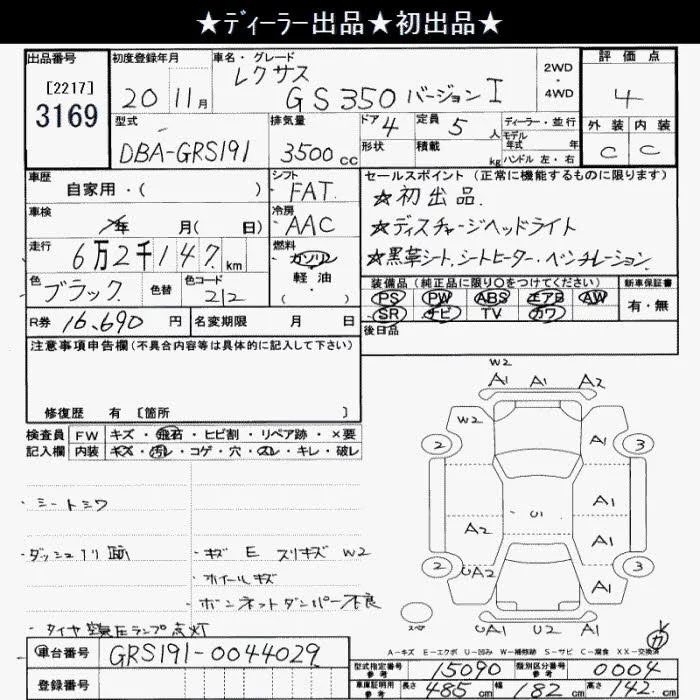 ★ディーラー出品★初出品★
出品番号 初度登録年月 車名・グレード 2WD・4WD 評価点
[2217] 3169 20 11月 レクサス GS350 バージョンI 4
外装 内装
C C
型式 排気量 ドア 4 定員 5人 ディーラー・並行
DBA-GRS191 3500cc 形状 積載 kg モデル年式 年式
ハンドル 左・右
車歴 シフト セールスポイント (正常に機能するものに限ります)
自家用・( ) FAT ☆初出品.
車検 年 月( 日) 冷房 AAC ☆ディスチャージヘッドライト
走行 6万2千147km 燃料 ガソリン ☆黒革シート,シートヒーター・ベンチレーション
軽油
( )
色 ブラック 色替 色コード 212
装備品 (純正品に限り○をつけてください) 新車保証書
PS PW ABS エアB AW 有・無
SR ナビ TV カワ
R券 16,690円 名変期限 月 日 後日品
注意事項申告欄 (不具合内容等は具体的に記入して下さい)
修復歴 有 [箇所 ]
検査員 FW キズ・飛石・ヒビ割・リペア跡・×要
記入欄 内装 キズ・汚レ・コゲ・穴・スレ・キレ・破レ
W2
A1 A1 A2
W2
2 A1 3
A1
U1
A2 A1
2 UA2 A1 3
UA1 U2 A1
・シートシワ
・キズ E スリキズ W2
・ホイールキズ
・ボンネットダンパー不良
・タイヤ空気圧ランプ点灯
A-キズ E-エクボ U-凹み W-補修跡 S-サビ C-腐食 XX-交換済
車台番号 GRS191-0044029
登録番号
型式指定番号 参考 15090 類別区分番号 参考 0004
車庫証明用 参考 長さ 485cm 幅 182cm 高さ 142cm